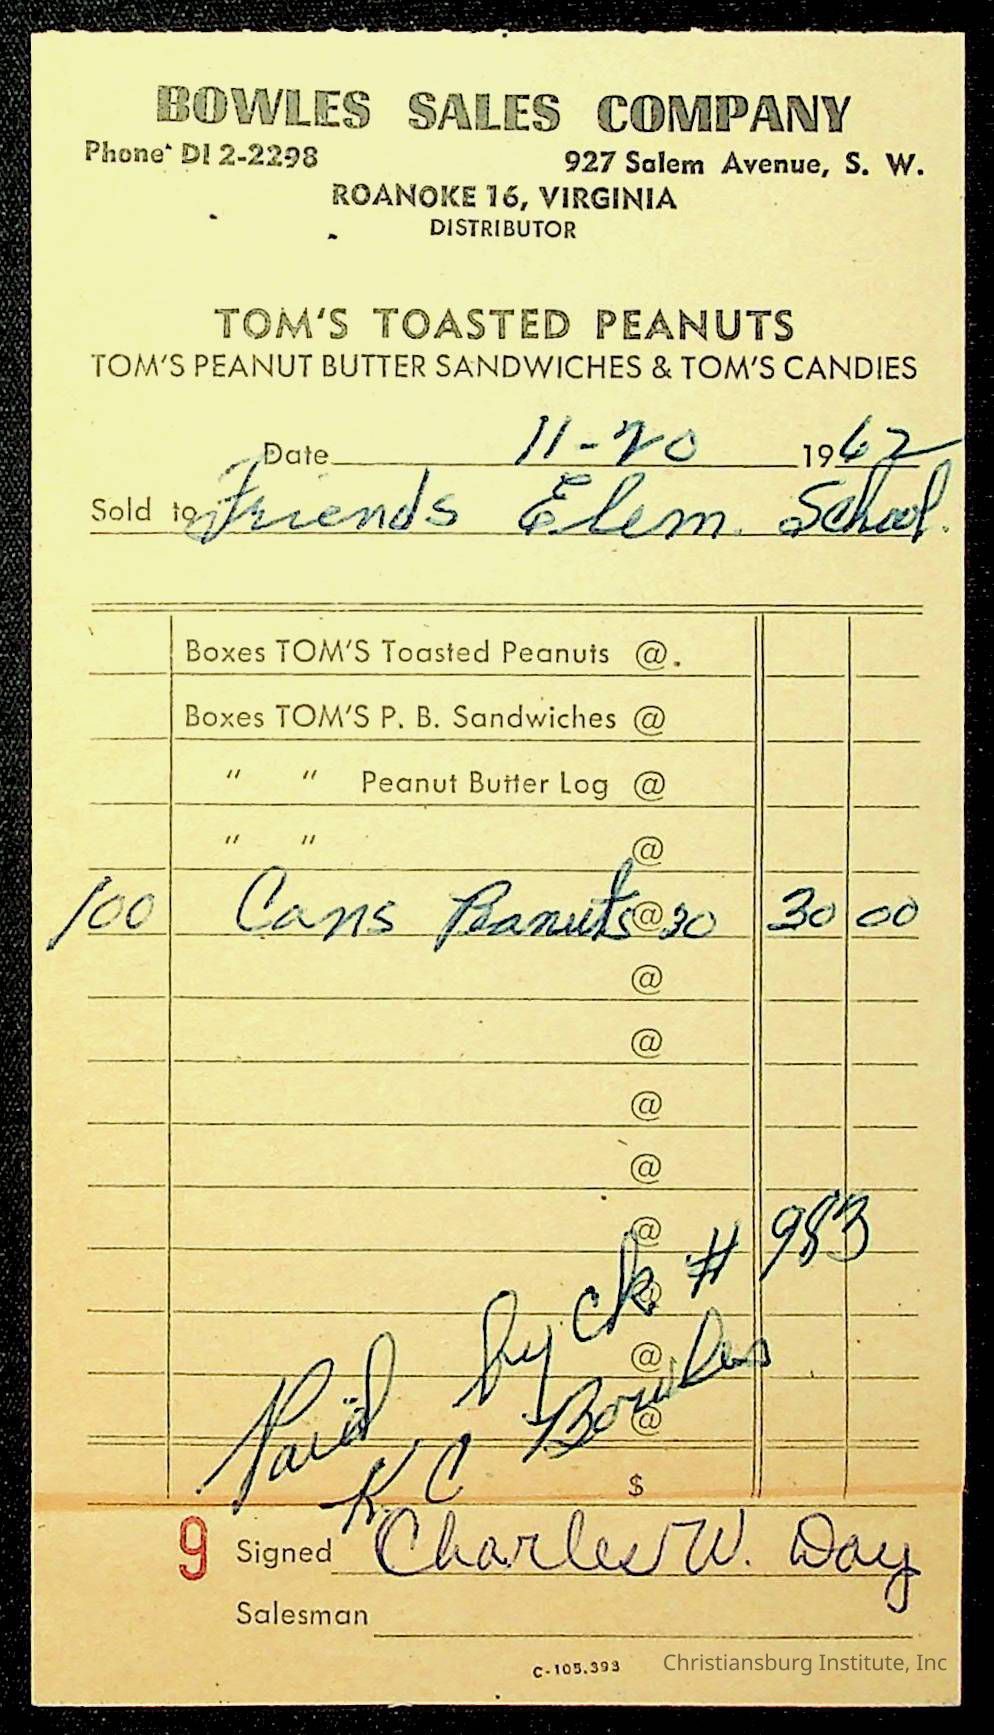 BOWLES SALES COMPANY
Phone DI 2-2298 927 Salem Avenue, S. W.
ROANOKE 16, VIRGINIA
DISTRIBUTOR
TOM'S TOASTED PEANUTS
TOM'S PEANUT BUTTER SANDWICHES & TOM'S CANDIES
Date 11-20 1962
Sold to Friends Elem. School.
Boxes TOM'S Toasted Peanuts @.
Boxes TOM'S P. B. Sandwiches @
" " Peanut Butter Log @
" " @
100 Cans Peanuts @ 30 30 00
@
@
@
@
@
@
@
@
Paid by ck # 983
K C Bowles
$
9 Signed Charles W. Day
Salesman
C-105,393
Christiansburg Institute, Inc